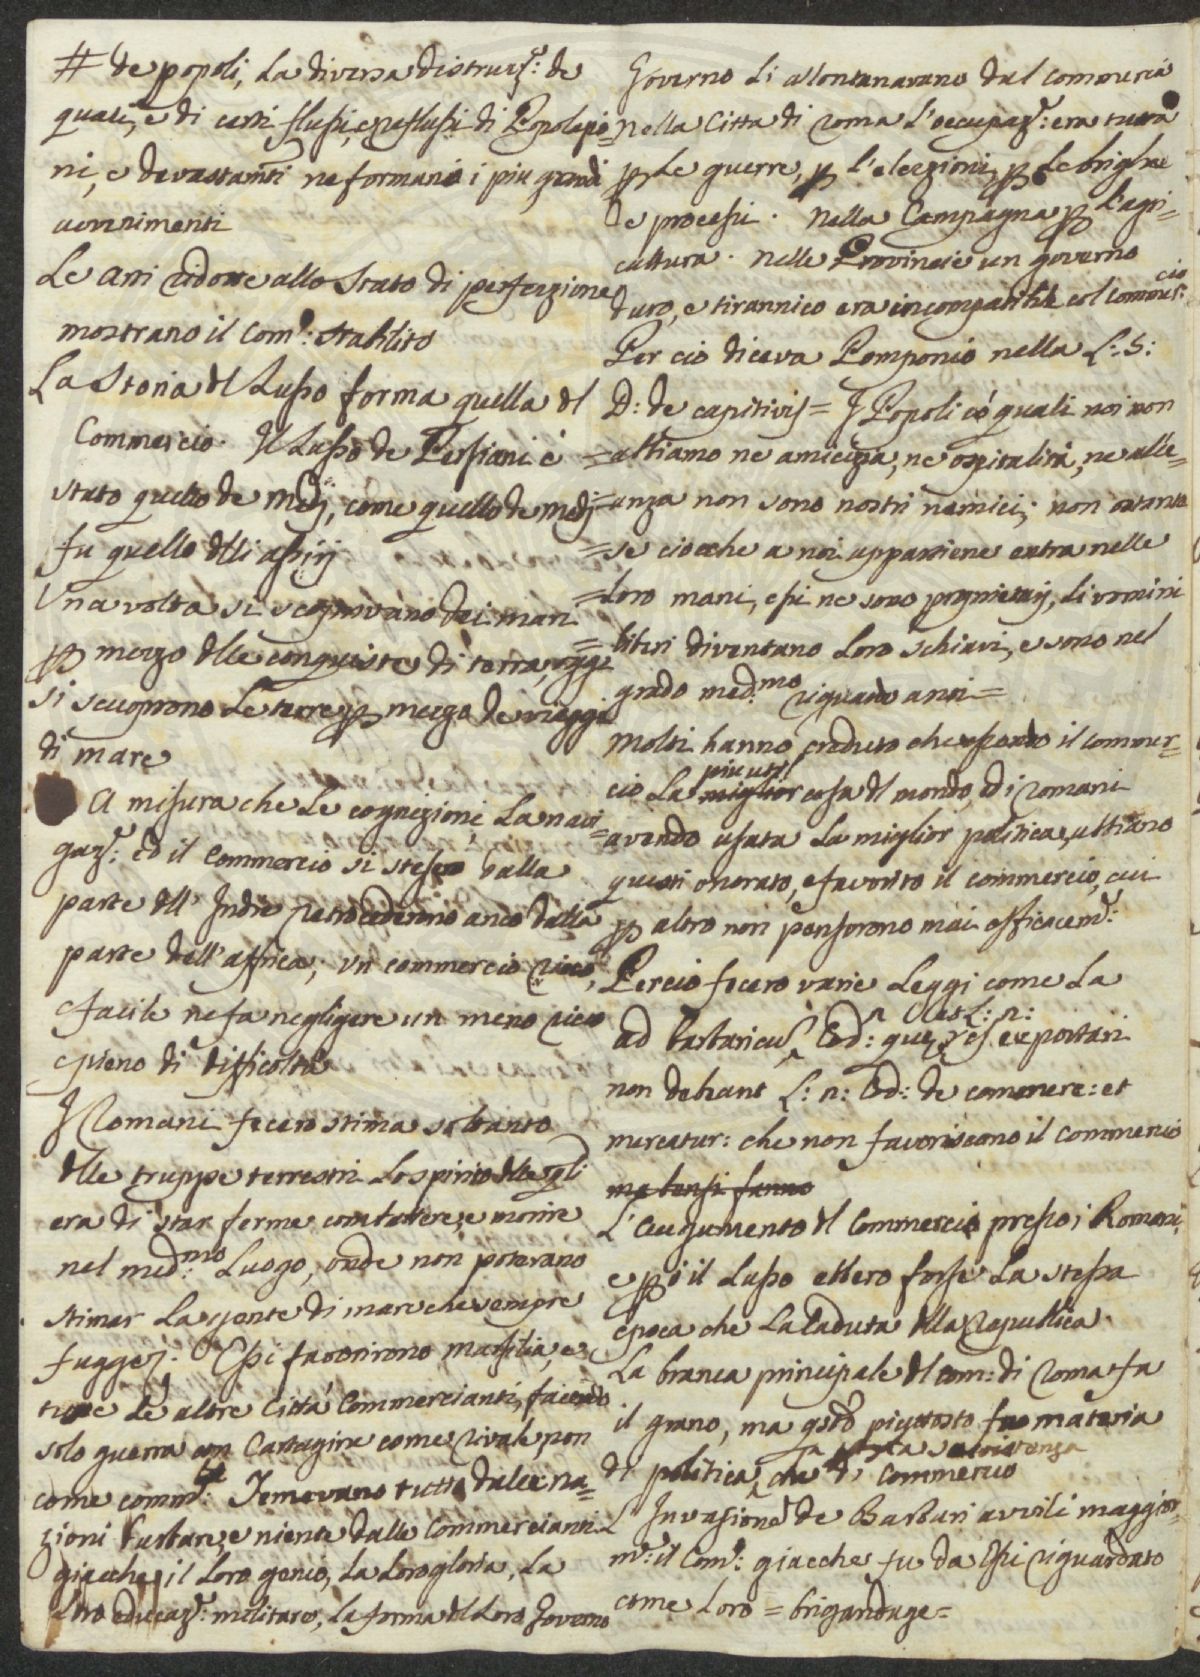 # de popoli, La diversa distruz.e: de
quali, e di certi flussi, e reflussi di Popolazio=
ni, e devastam.ti ne formano i piu grandi
avvenimenti
Le Arti ridotte allo Stato di perfezzione
mostrano il Com.o: stabilito
La Storia dl Lusso forma quella dl
Commercio. Il Lusso de Persiani é
stato quello de Medj, come quello de Medj
fu quello dlli assirj
Una volta si scoprivano dei mari
p mezzo dlle conquiste di terra, oggi
si scuoprono Le terre p mezzo de viaggi
di mare
A misura che Le cognizioni, La navi=
gaz.e: ed il Commercio si stese dalla
parte dll' Indie retrocederono anco dalla
parte dell'affrica; un commercio ricco,
e facile ne fa negligere un meno ricco
e pieno di difficoltà
I Romani fecero stima soltanto
dlle truppe terrestri. Lo spirito dlle qli
era di star ferme combattere, e morire
nel med:mo Luogo, onde non potevano
stimar La gente di mare che sempre
fugge. Essi favorirono Massilia, e
tutte Le altre Città Commercianti, facendo
solo guerra con Cartagine come rivale, non
come comm.te: Temevano tutto dalle na=
zioni barbare, e niente dalle Commercianti
giacche il Loro genio, La Loro gloria, La
Loro educaz.e: militare, La forma dl Loro Governo
Governo Li allontanavano dal commercio
Nella Citta di Roma L'occupaz.e: era tutta
p Le guerre, p L'elezzioni, p Le brighe
de processi. Nella Campagna p L'agri=
cultura. Nelle Provincie un governo
duro, e tirannico era incompatibile col commer:cio
Per cio diceva Pomponio nella L: 5:
D: de capitivis = I Popoli có quali noi non
= abbiamo ne amicizia, ne ospitalità, ne alle=
= anza non sono nostri nemici; non ostante
= se ciocche a noi appartiene entra nelle
= Loro mani, essi ne sono proprietarj, Li uomini
= liberi diventano Loro schiavi, e sono nel
grado med:mo riguardo a noi =
Molti hanno creduto che essendo il commer=
cio La miglior più util cosa dl mondo, ed i Romani
avendo usata La miglior politica, abbiano
questi onorato, e favorito il commercio, cui
p altro non pensorono mai efficacem.e:
Percio fecero varie Leggi come La
ad barbaricũ Cod: quae res exportari
non debeant L: n: Cod: de commerc: et
mercatur: che non favoriscono il commercio
ma bensi fanno
L'augumento dl Commercio presso i Romani,
e p ó il Lusso ebbero forse La stessa
epoca che La Caduta dlla Republica.
La branca principale dl com: di Roma fa
il grano, ma qsto piuttosto fu materia
di politica, che di Commercio
L'Invasione de Barbari avvili maggior=
m.e: il Com.o: giacche fu da Essi riguardato
come Loro = brigandage =